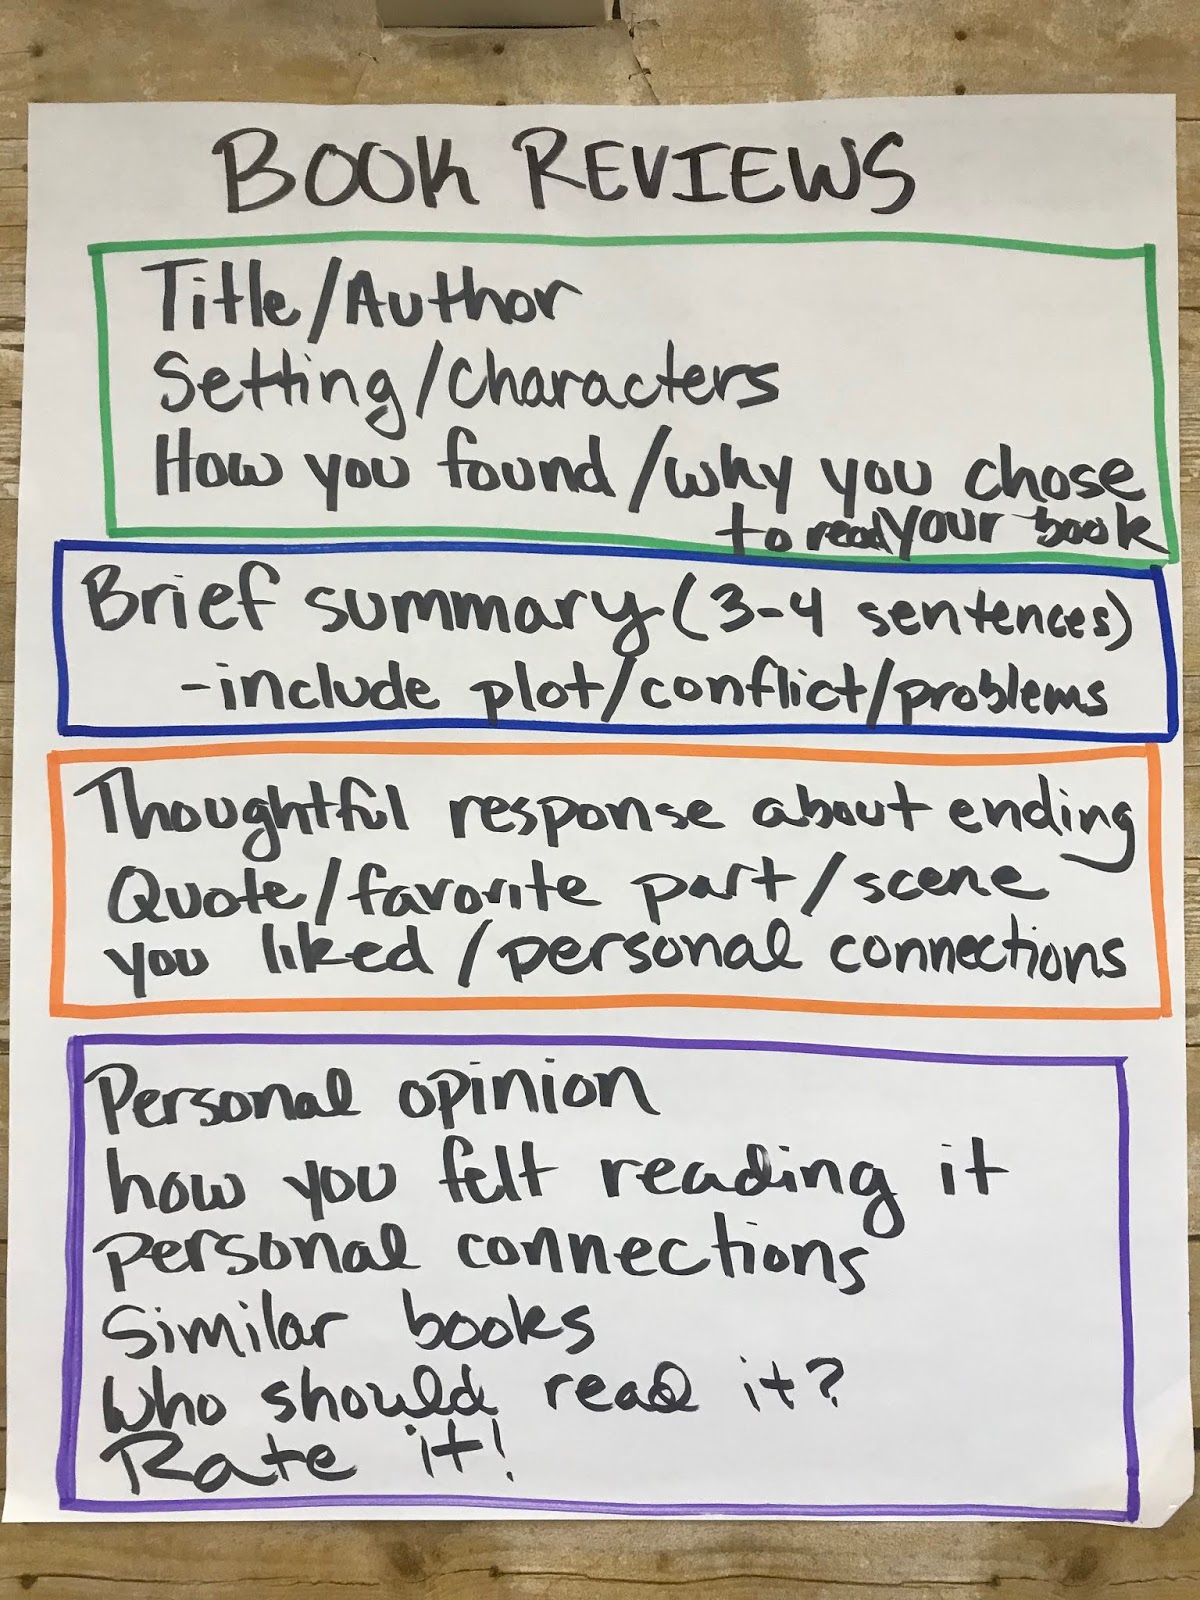 BOOK REVIEWS
Title/Author
Setting/Characters
How you found/why you chose
to read your book
Brief summary (3-4 sentences)
-include plot/conflict/problems
Thoughtful response about ending
Quote/favorite part/scene
you liked/personal connections
Personal opinion
how you felt reading it
personal connections
Similar books
Who should read it?
Rate it!